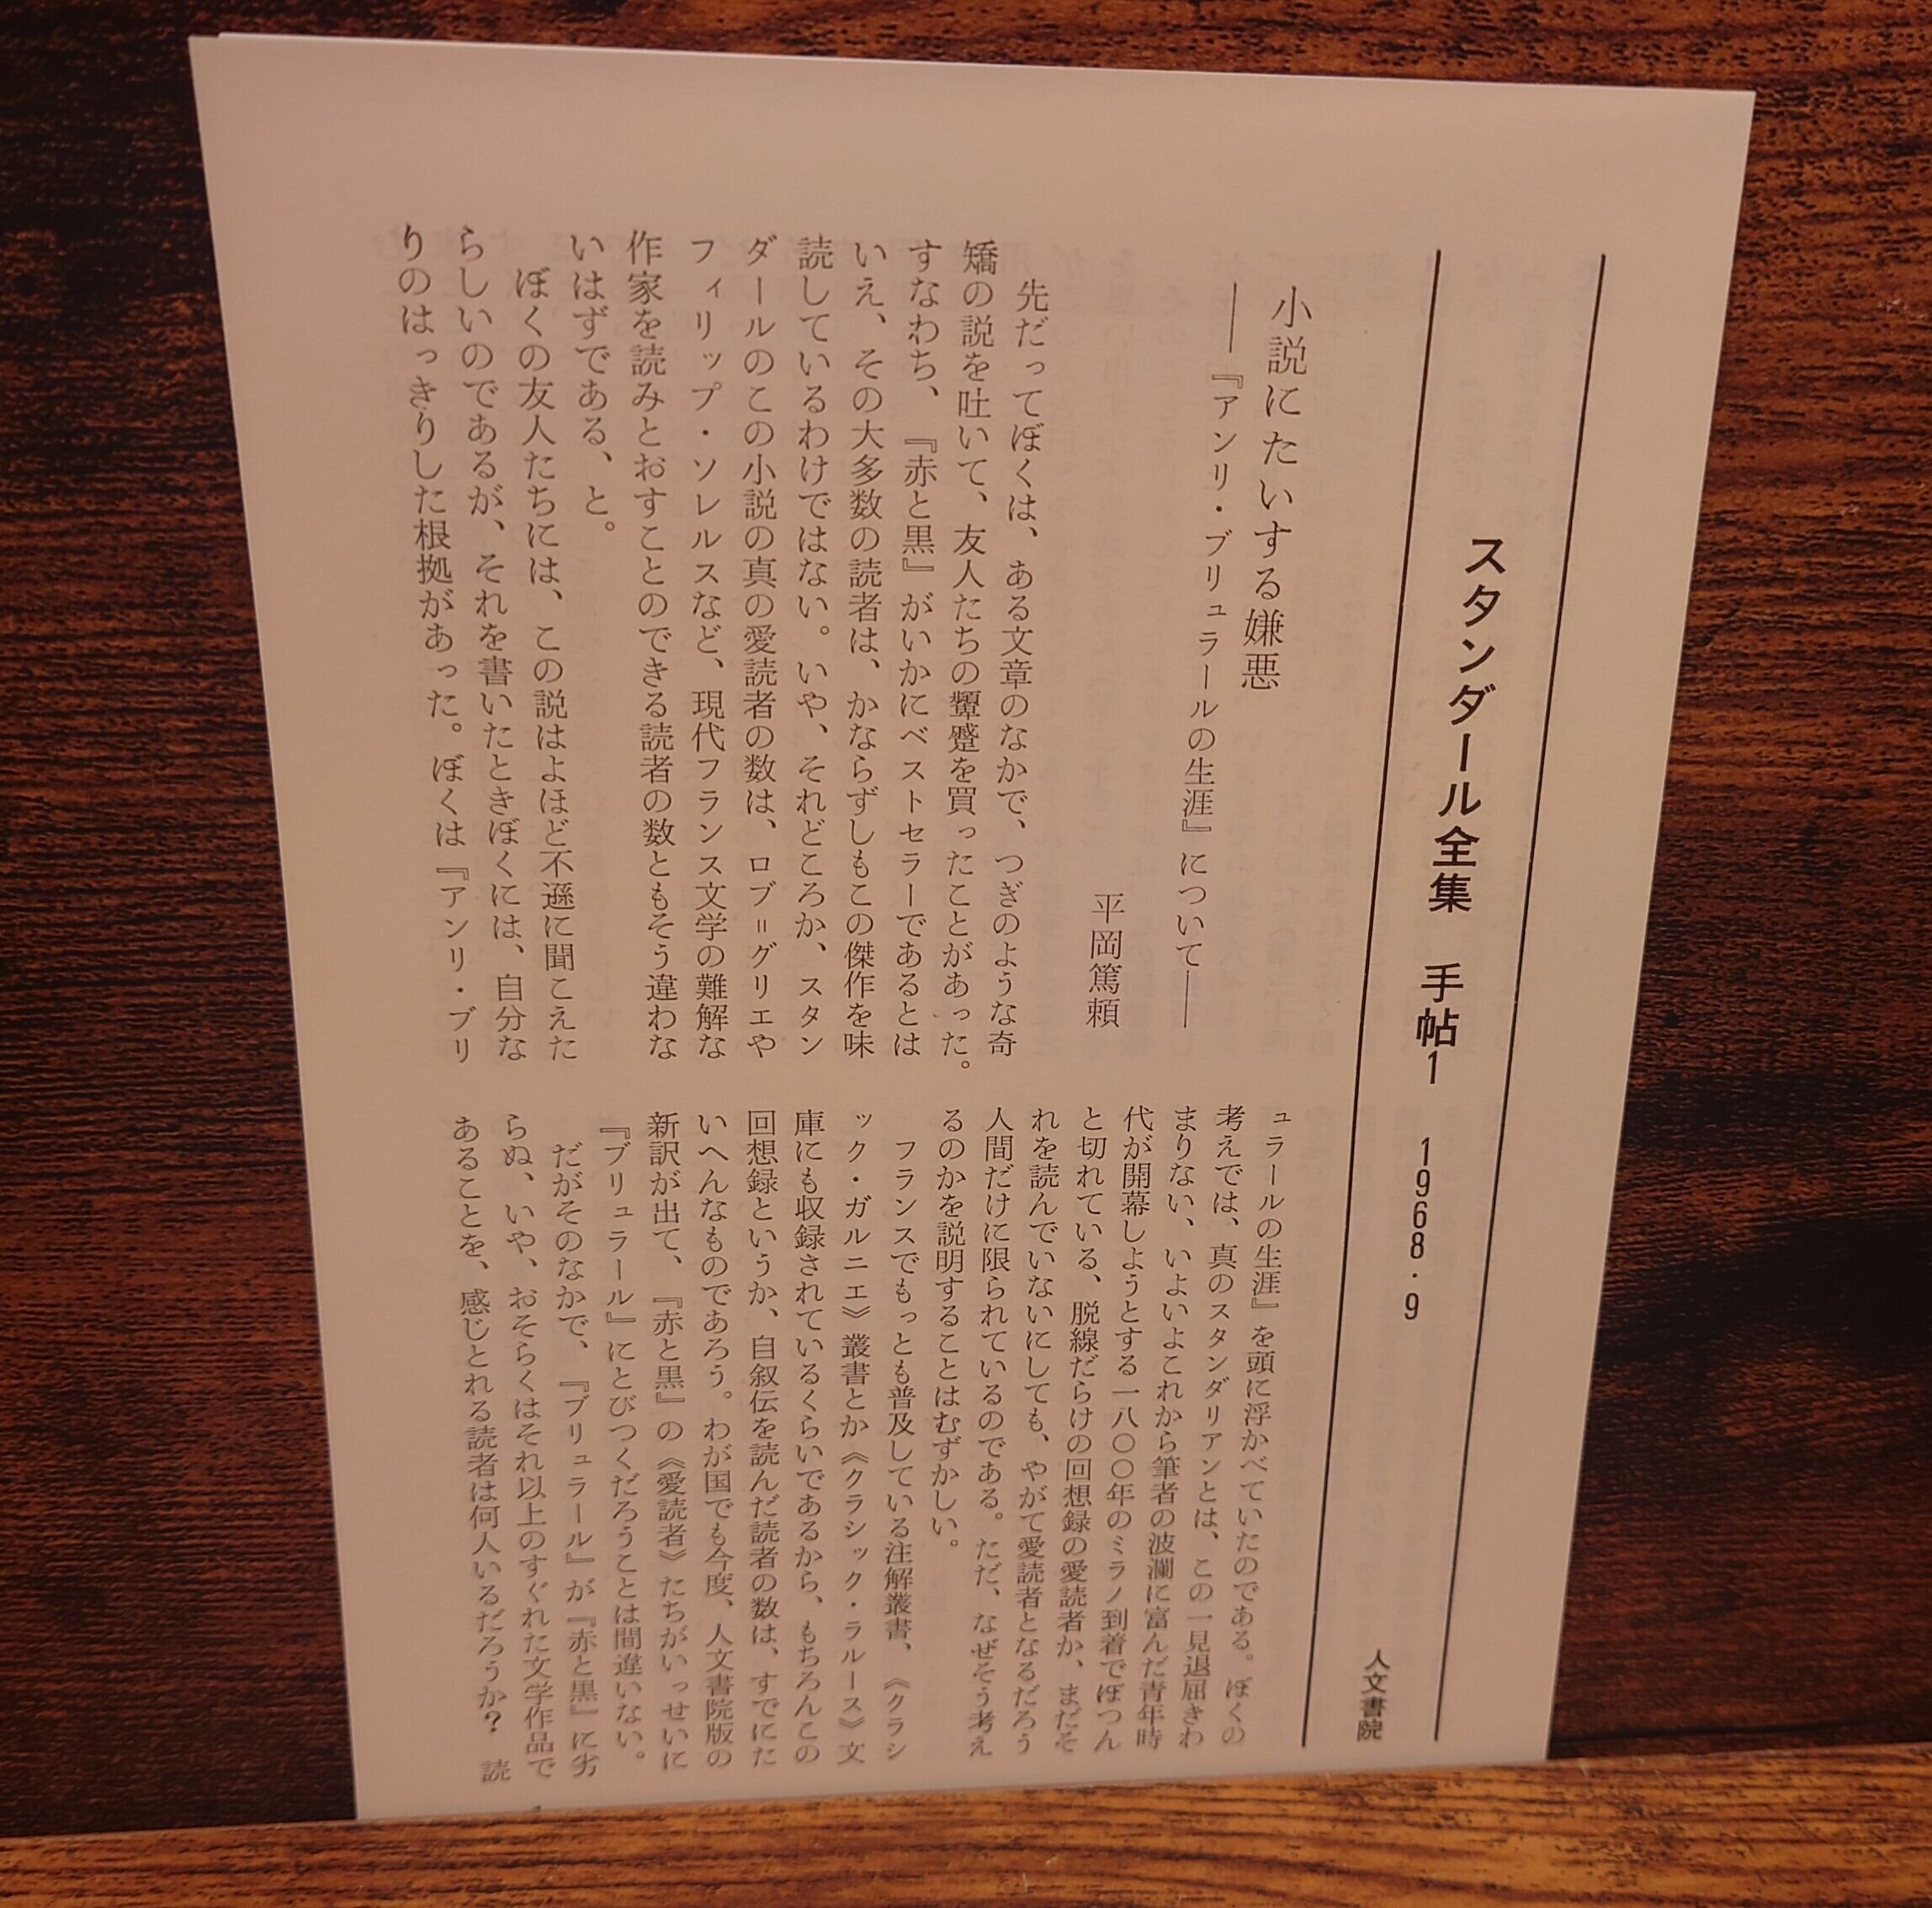 スタンダール全集 手帖1 1968・9
人文書院
小説にたいする嫌悪
――『アンリ・ブリュラールの生涯』について――
平岡篤頼
先だってぼくは、ある文章のなかで、つぎのような奇
矯の説を吐いて、友人たちの顰蹙を買ったことがあった。
すなわち、『赤と黒』がいかにベストセラーであるとは
いえ、その大多数の読者は、かならずしもこの傑作を味
読しているわけではない。いや、それどころか、スタン
ダールのこの小説の真の愛読者の数は、ロブ＝グリエや
フィリップ・ソレルスなど、現代フランス文学の難解な
作家を読みとおすことのできる読者の数ともそう違わな
いはずである、と。
ぼくの友人たちには、この説はよほど不遜に聞こえた
らしいのであるが、それを書いたときぼくには、自分な
りのはっきりした根拠があった。ぼくは『アンリ・ブリ
ュラールの生涯』を頭に浮かべていたのである。ぼくの
考えでは、真のスタンダリアンとは、この一見退屈きわ
まりない、いよいよこれから筆者の波瀾に富んだ青年時
代が開幕しようとする一八〇〇年のミラノ到着でぽつん
と切れている、脱線だらけの回想録の愛読者か、まだそ
れを読んでいないにしても、やがて愛読者となるだろう
人間だけに限られているのである。ただ、なぜそう考え
るのかを説明することはむずかしい。
フランスでもっとも普及している注解叢書、《クラシ
ック・ガルニエ》叢書とか《クラシック・ラルース》文
庫にも収録されているくらいであるから、もちろんこの
回想録というか、自叙伝を読んだ読者の数は、すでにた
いへんなものであろう。わが国でも今度、人文書院版の
新訳が出て、『赤と黒』の《愛読者》たちがいっせいに
『ブリュラール』にとびつくだろうことは間違いない。
だがそのなかで、『ブリュラール』が『赤と黒』に劣
らぬ、いや、おそらくはそれ以上のすぐれた文学作品で
あることを、感じとれる読者は何人いるだろうか？ 読